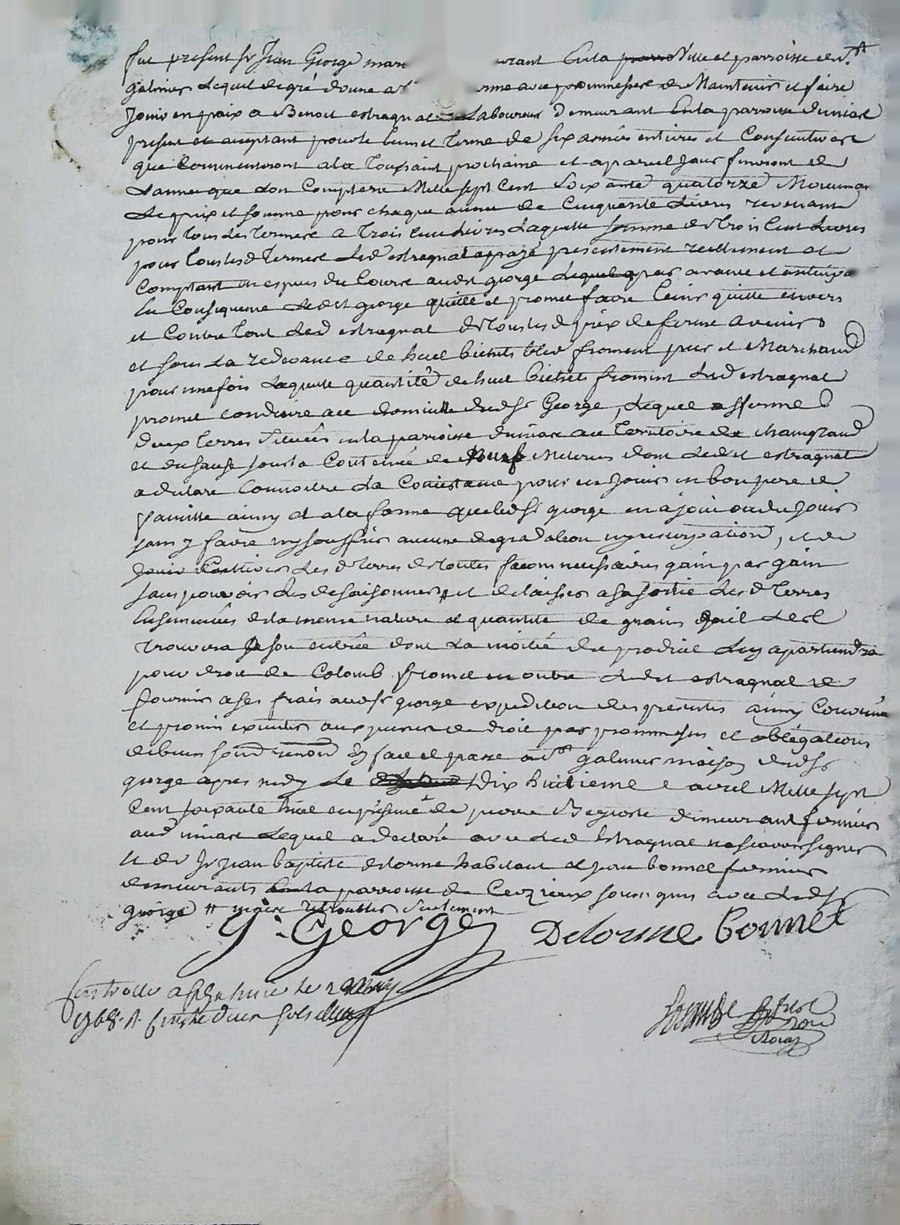 fut present Sr Jean George mar urant En la Ville et parroisse de St
galmier Lequel de gré donne a rme avec prommesse de Maintenir et faire
Jouir en paix a Benoit estragnat Laboureur demeurant En la parroisse
present et acceptant pour le tems et Terme de six années entieres et Consecutives
qui Commenceront a la Toussaint prochaine et a pareil Jour finiront de
L'année que L'on Comptera Mille sept Cent soixante quatorze Moiennant
Le prix et somme pour chaque année de Cinquante Livres revenant
pour tous Les Termes a Trois Cent Livres Laquelle somme de Trois Cent Livres
pour tous Lesd Termes Led estragnat a payé presentement reellement et
Comptant en espèces du Cours aud George Lequel par avance et
En Consequence Ledit george quitte et promet faire tenir quitte envers
et Contre tout Led estragnat de tous Lesd prix de ferme avenir
et sous La redevance de huit bichets bled froment pur et Marchand
pour une fois Laquelle quantité de huit bichets froment Led estragnat
promet conduire au domicille dud Sr George, Lequel afferme
deux Terres situées en la parroisse au Territoire de
et sous la Contenue de Meterees dont Ledit estragnat
a declaré Connoitre La Consistance pour en Jouir en bon pere de
famille ainsy et a la forme que led Sr george en a joui ou du Jouir
sans y faire ny souffrir aucune degradation ny usurpation, et de
Cultiver Lesd Terres de toutes facons necessaires gain par gain
sans pouvoir Les desaisonner, et de laisser a sa sortie Lesd Terres
Ensemencées de la meme nature et quantité de grains qu'il Les
Trouvera a son entrée dont La moitié du produit Luy apartiendra
pour droit de Colomb froment en outre Ledit estragnat de
fournir a ses frais aud Sr george expedition des presentes ainsy Convenu
et promis executer aux peines de droit par prommesses et obligations
de biens soumis renon fait et passé aud St galmier maison dud Sr
george apres midy Le dix huitieme avril Mille sept
Cent soixante huit en présence de pierre demeurant fermier
aud Lequel a declaré avec Led Estragnat ne scavoir signer
et de Sr Jean baptiste delorme habitant et Jean bonnet fermier
demeurants La parroisse de Cuzieux soussignés avec Led Sr
george
G. George Delorme bonnet
Controllé a St galmier le
1768